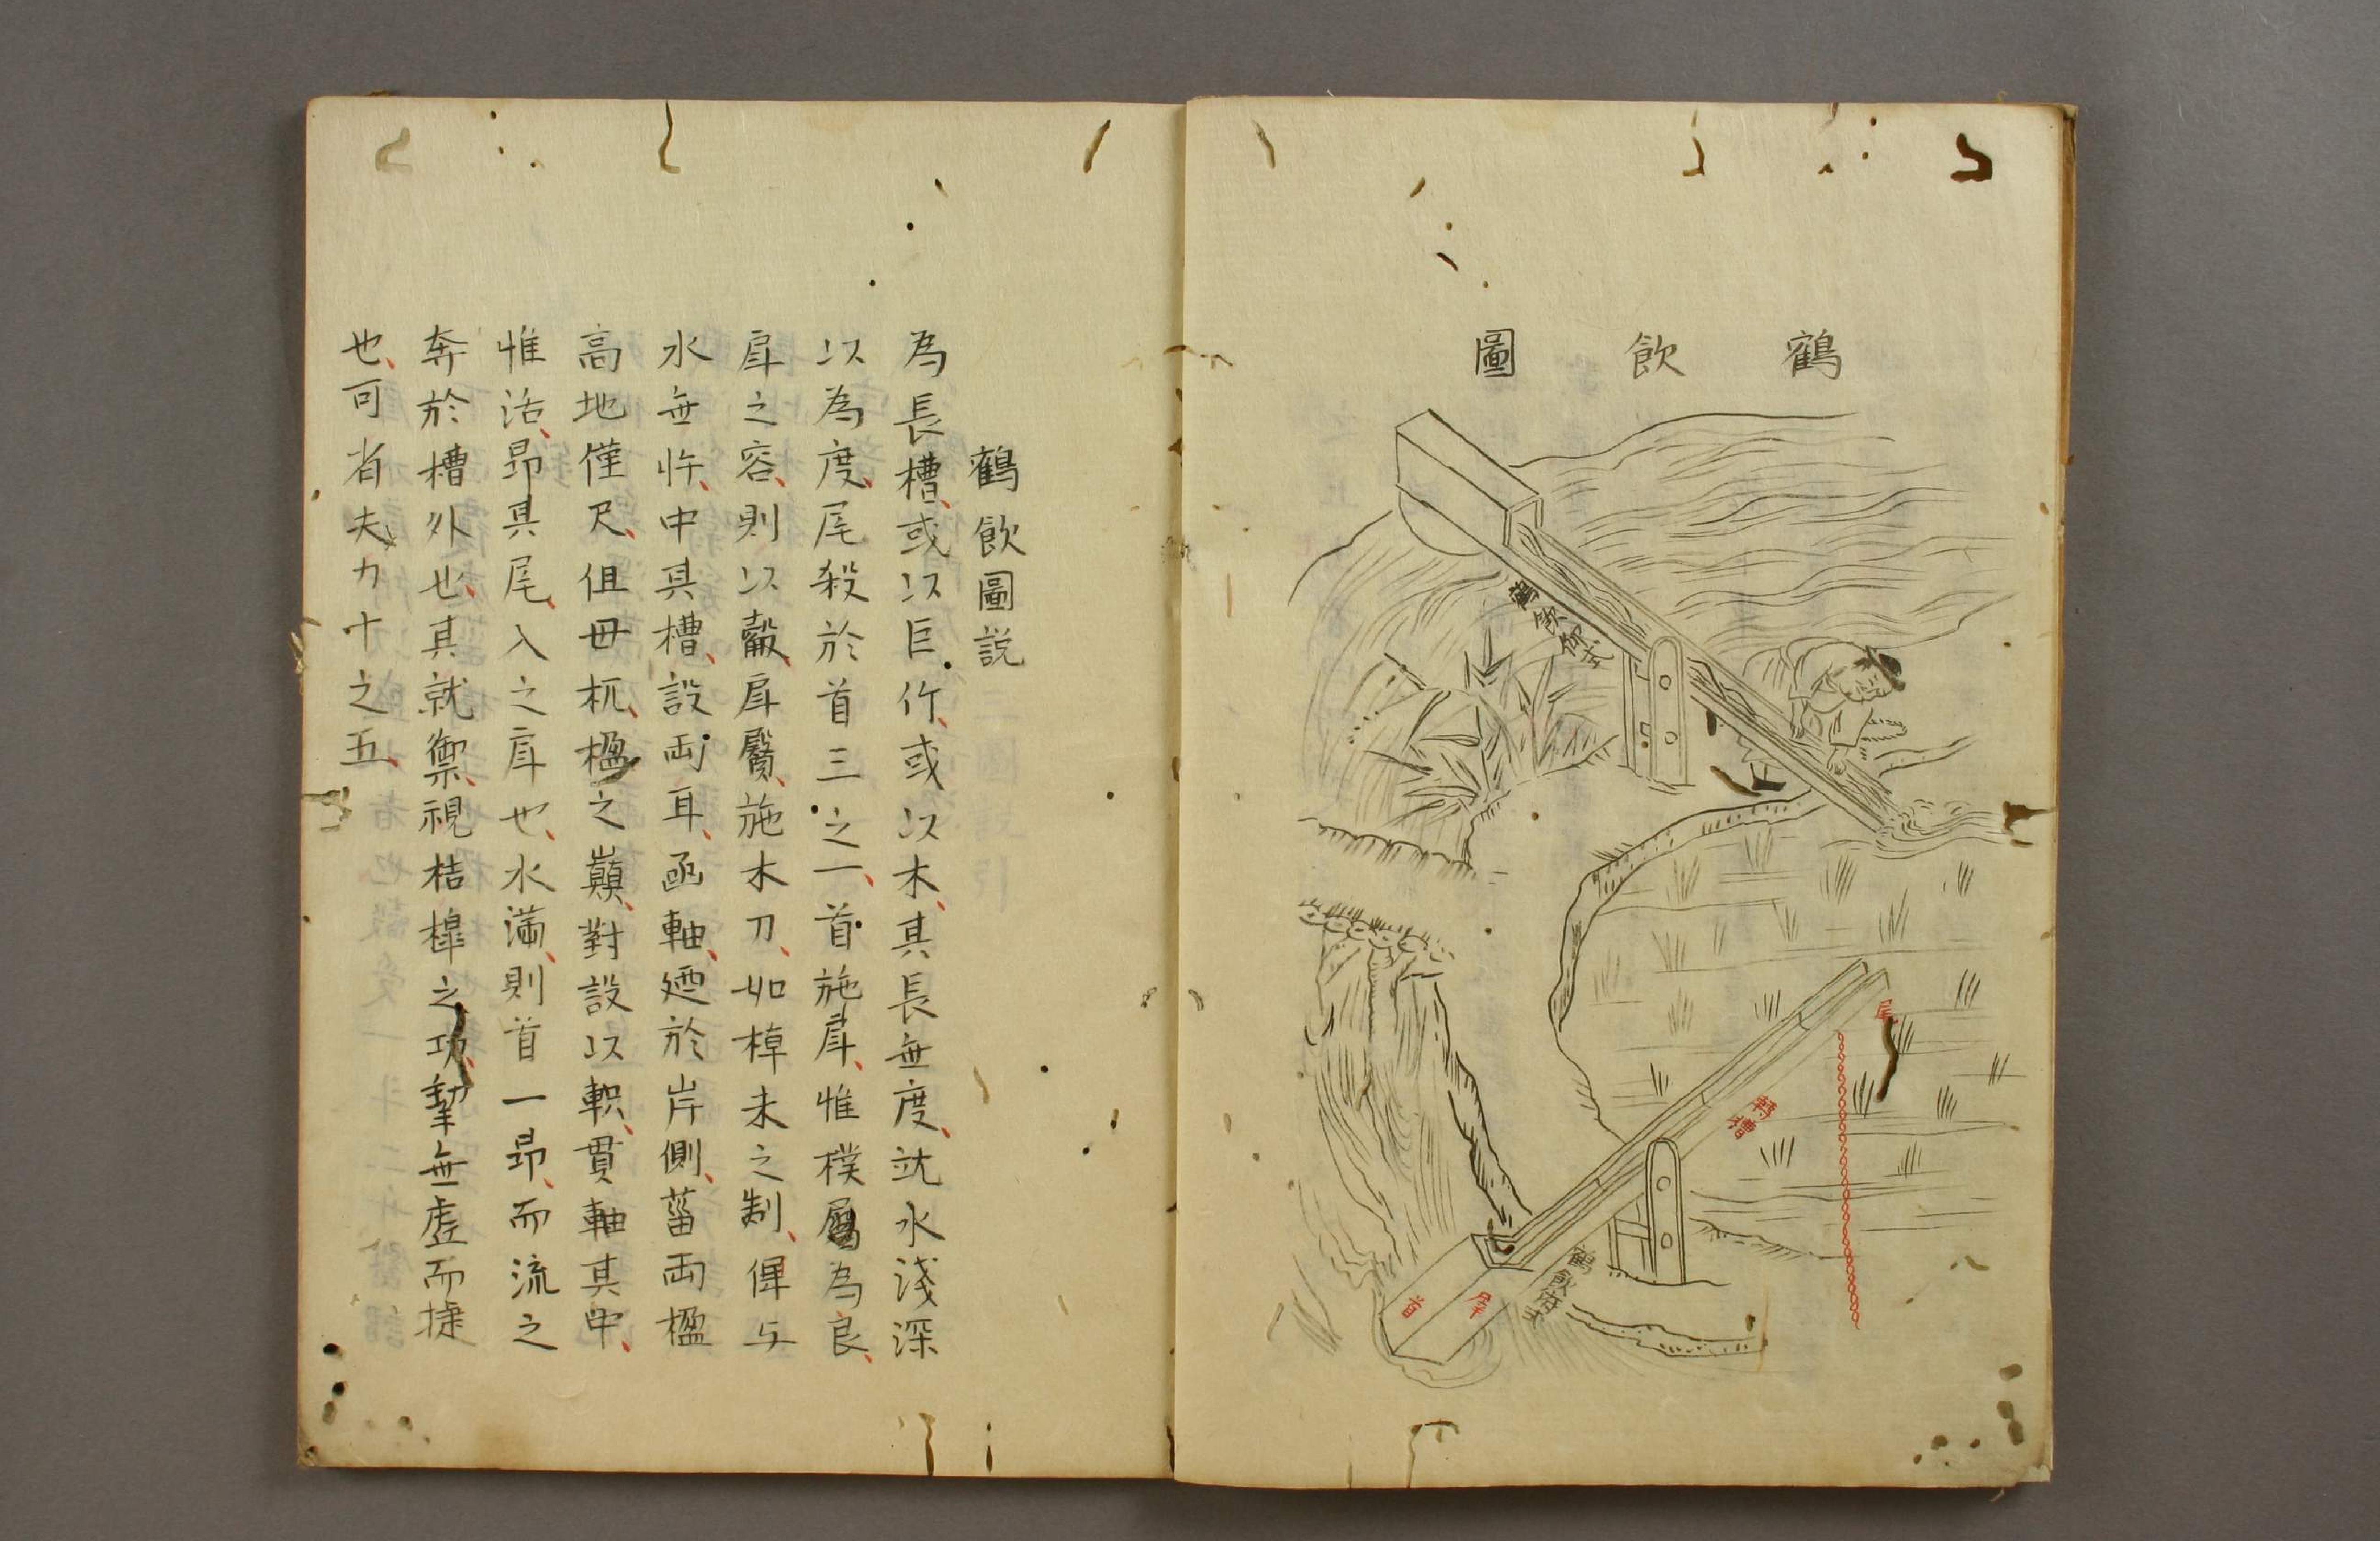 鶴飲圖
鶴飲仰式
尾
首
戽
鶴飲俯式
鶴飲圖説
為長槽、或以巨竹、或以木、其長無度、就水淺深
以為度、尾殺於首三之一、首施戽、惟樸屬為良、
戽之容、則以轂、戽脣、施木刀、如棹末之制、俾与
水無忤、中其槽、設兩耳、函軸、廼於岸側、菑兩楹
高地僅尺、但毋杌、楹之巔、對設以軹、貫軸其中、
惟活、昂其尾、入之戽也、水滿、則首一昂、而流之
奔於槽外也、其就禦、視桔槹之功、挈無虛而捷
也、可省夫力十之五、